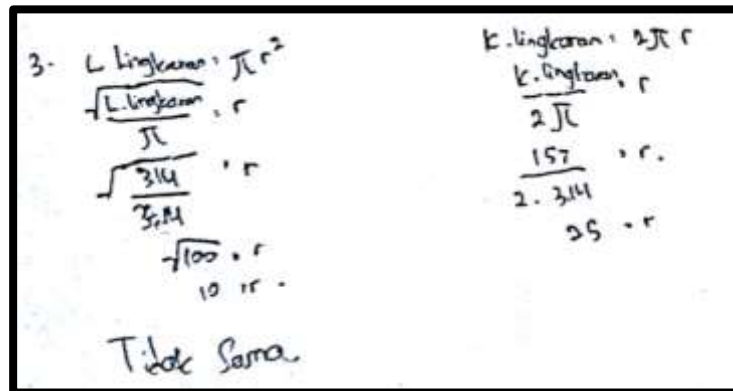 3. L lingkaran = π r²
√(L. lingkaran / π) = r
√(314 / 3,14) = r
√100 = r
10 = r.
Tidak Sama
K. lingkaran = 2π r
K. lingkaran / 2π = r
157 / 2. 3,14 = r.
25 = r